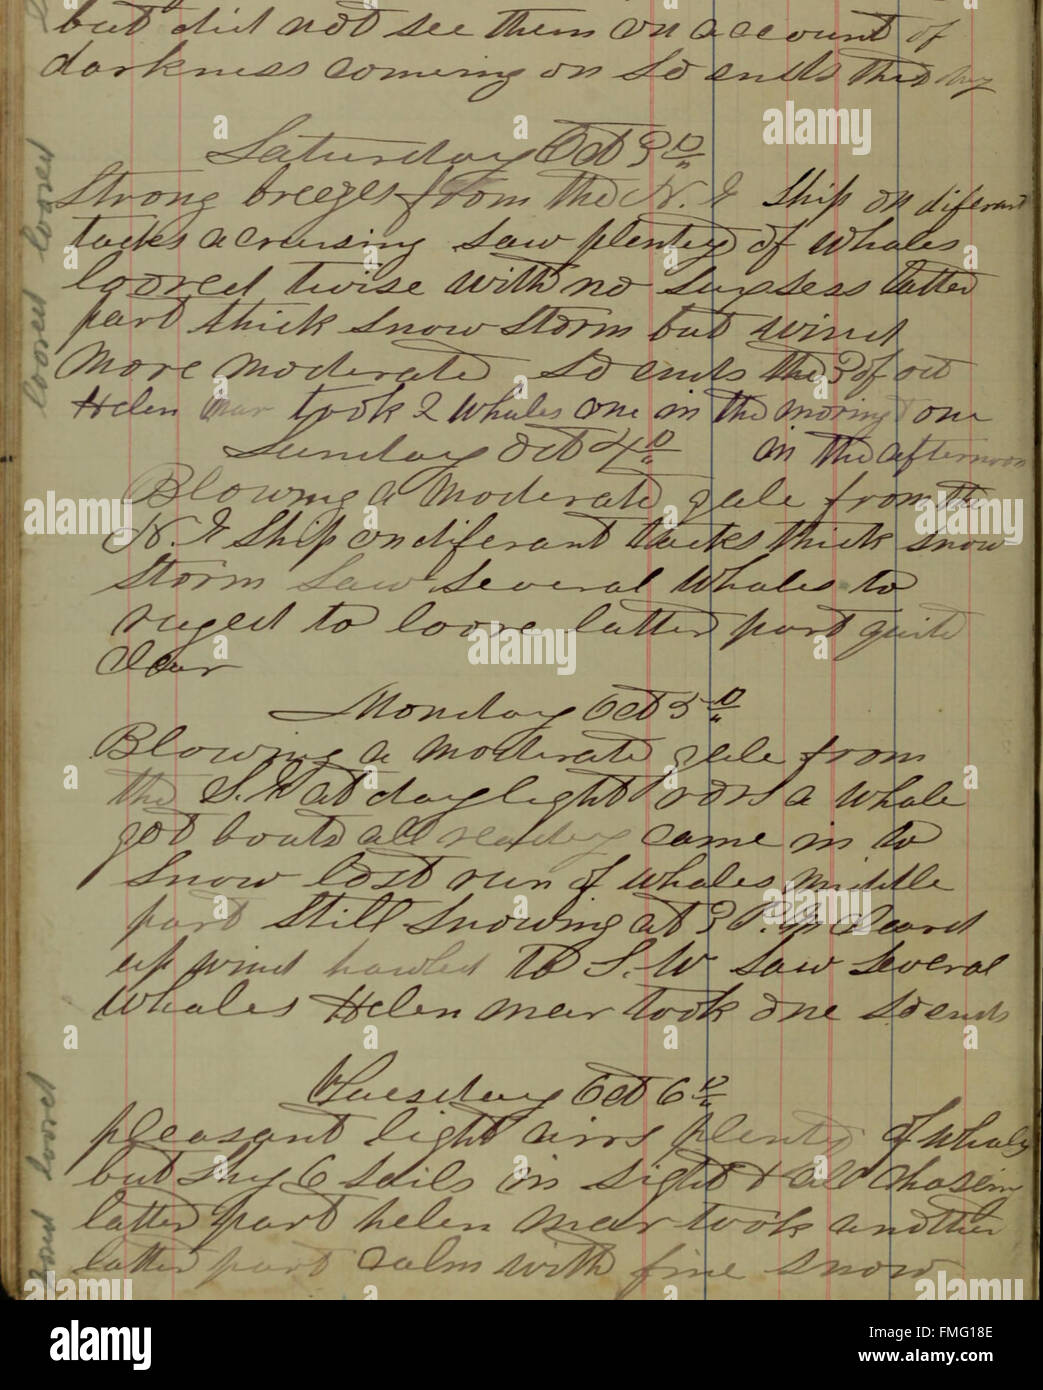 but did not see them on account of
darkness coming on So ends this day
Saturday Oct 3 D
Strong breezes from the N. E Ship on diferant
tacks a cruising Saw plenty of whales
loored twise with no Suxsess latter
part thick Snow Storm but wind
more moderate So ends the 3 of oct
Helen mar took 2 whales one in the morning & one
in the afternoon
Sunday Oct 4 D
Blowing a moderate gale from the
N. E Ship on diferant tacks thick Snow
Storm Saw Several whales to
ruged to loore latter part quite
clear
Monday Oct 5 D
Blowing a moderate gale from
the S. E at daylight a whale
got boats all ready came in to
Snow lost run of whales middle
part Still Snowing at 3 P.M cleared
up wind hawled to S. W Saw Several
whales Helen mar took one So ends
Tuesday Oct 6 D
pleasant light airs plenty of whales
but Shy 6 Sails in Sight & all chasing
latter part helen mar took another
latter part calm with fine snow
loored loored
loored
alamy
Image ID: FMG18E
www.alamy.com